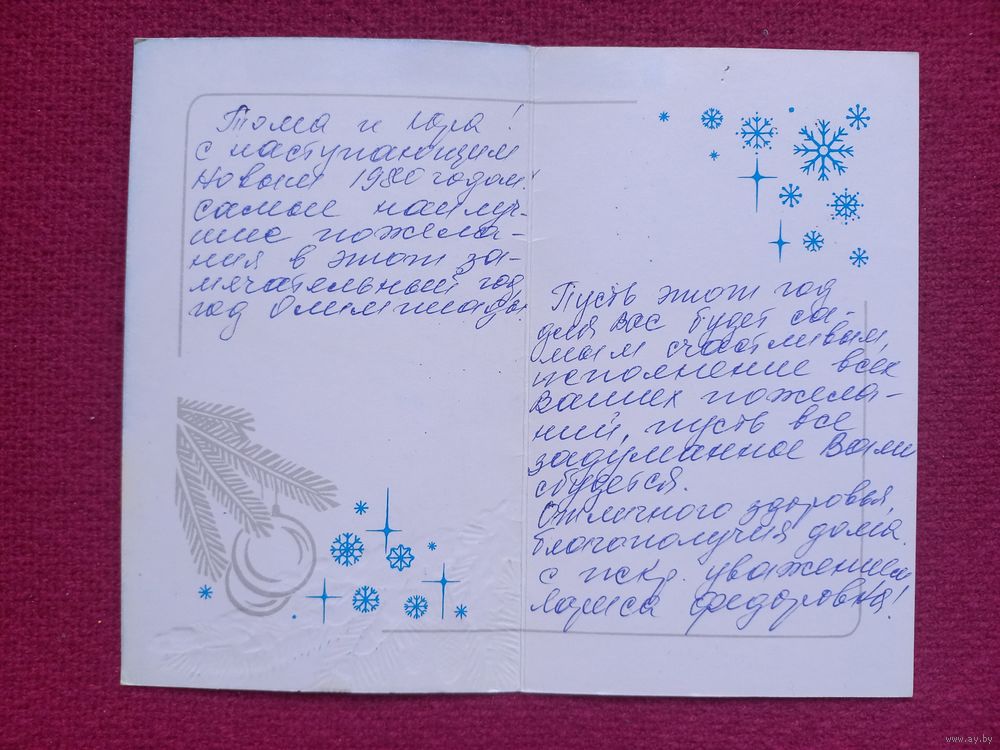 Тома и Юра!
с наступающим
Новым 1980 годом!
самые наилуч-
шие пожела-
ния в этот за-
мечательный год,
год Олимпиады.
Пусть этот год
для Вас будет са-
мым счастливым,
исполнение всех
Ваших пожела-
ний, пусть все
задуманное Вами
сбудется.
Отличного здоровья,
благополучия дома.
с искр. уважением
Лариса Федоровна!
www.ay.by